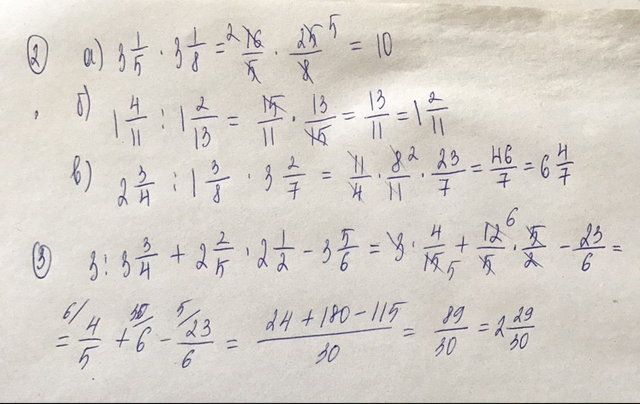 ② а) 3 1/5 · 3 1/8 = ² 16/5 · 25/8 ⁵ = 10
б) 1 4/11 : 1 2/13 = 15/11 · 13/15 = 13/11 = 1 2/11
в) 2 3/4 : 1 3/8 · 3 2/7 = 11/4 · 8/11 ² · 23/7 = 46/7 = 6 4/7
③ 3 : 3 3/4 + 2 2/5 · 2 1/2 - 3 5/6 = 3 · 4/15 5 + 12/5 ⁶ · 5/2 - 23/6 =
= 6/ 4/5 + 30/ 6 - 5/ 23/6 = (24 + 180 - 115)/30 = 89/30 = 2 29/30